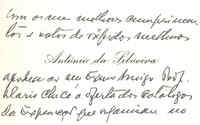 Com os seus melhores cumprimen-
tos e votos de rápidas melhoras
António da Silveira
agradece ao seu Exmo Amigo Prof.
Mário Chicó a oferta dos catálogos
da Exposição que organizou no